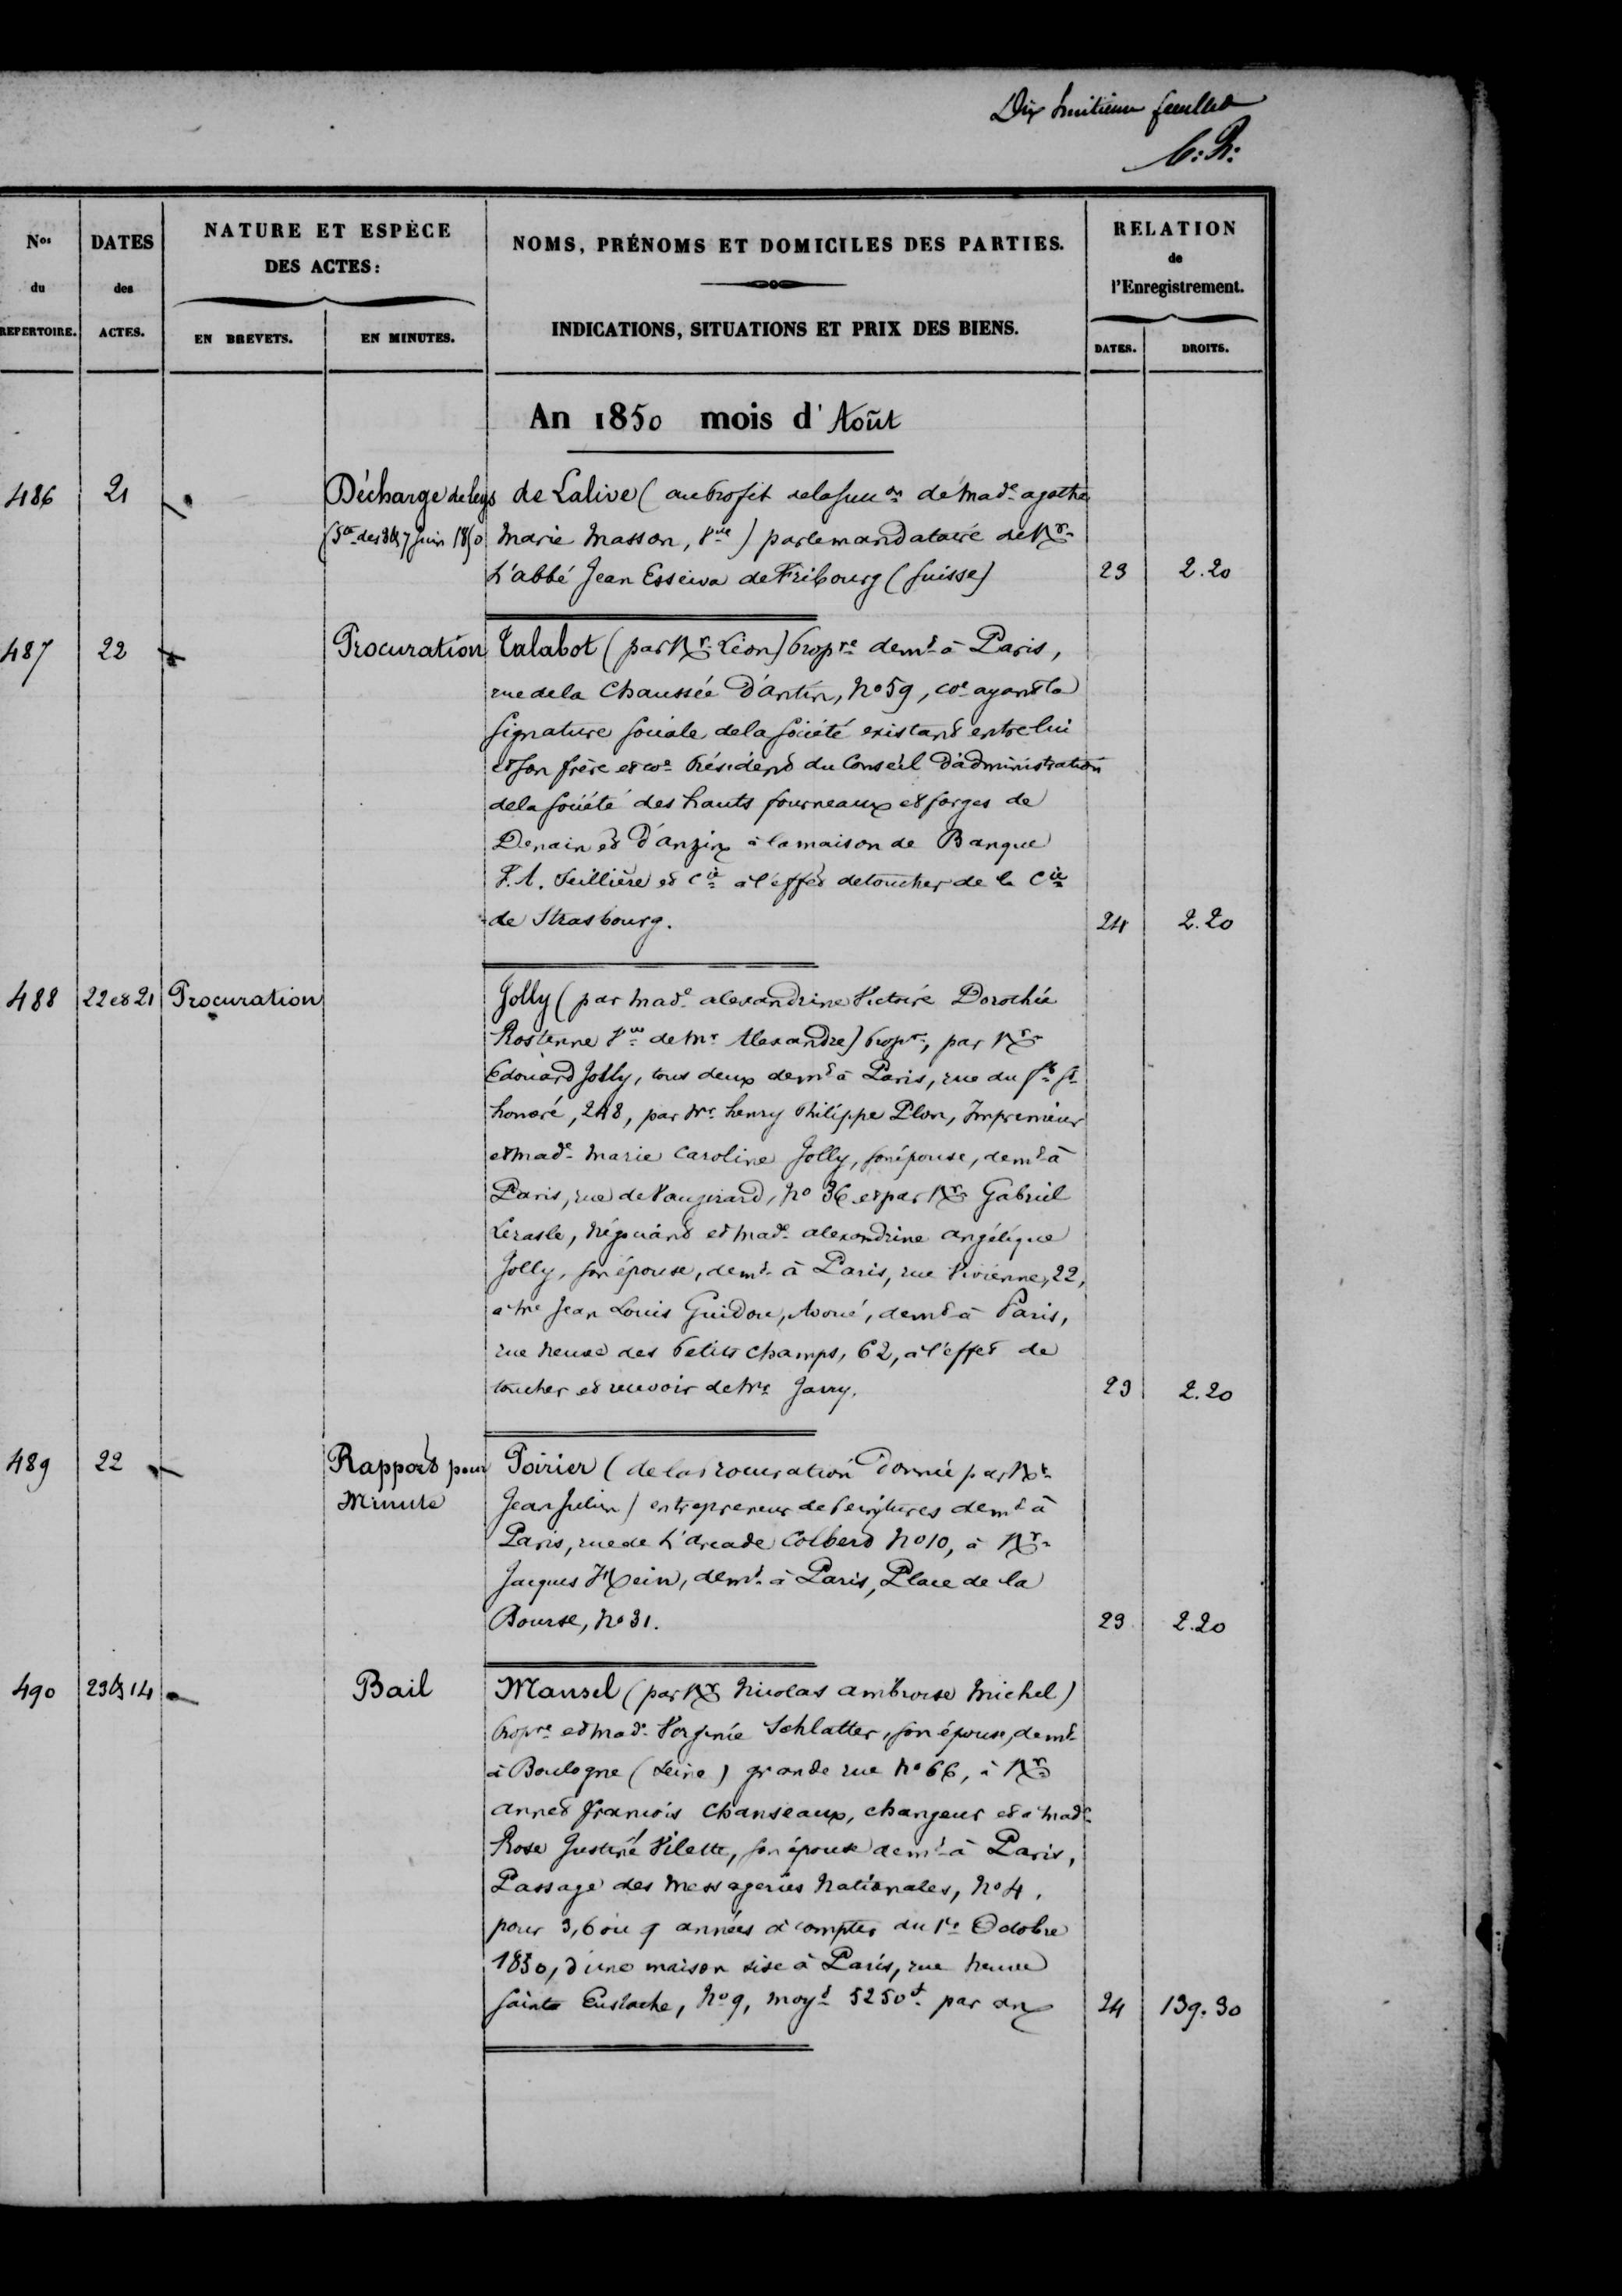 Dix huitième feuillet
Nos du REPERTOIRE.
DATES des ACTES.
NATURE ET ESPÈCE DES ACTES:
EN BREVETS.
EN MINUTES.
NOMS, PRÉNOMS ET DOMICILES DES PARTIES.
INDICATIONS, SITUATIONS ET PRIX DES BIENS.
RELATION de l'Enregistrement.
DATES.
DROITS.
An 1850 mois d'Août
486 21 Décharge de legs de Lalive (au profit de la succon de made agathe
Marie Masson, Vve) par le mandataire de Mr
L'abbé Jean Esseiva de Fribourg (Suisse) 23 2.20
487 22 Procuration Talabot (par Mr Léon) propre demt à Paris,
rue de la Chaussée d'antin, No 59, coe ayant la
signature sociale de la société existant entre lui
et son frère et coe Président du Conseil d'administration
de la société des hauts fourneaux et forges de
Denain et d'anzin à la maison de Banque
F. A. Seillière et Cie à l'effet de toucher de la Cie
de Strasbourg. 24 2.20
488 22 et 21 Procuration Jolly (par made alexandrine Victoire Dorothée
Rostenne Vve de Mr Alexandre) propre, par Mr
Edouard Jolly, tous deux demt à Paris, rue du fg St
honoré, 248, par Mr henry Philippe Plon, Imprimeur
et made Marie Caroline Jolly, son épouse, demt à
Paris, rue de Vaugirard, No 36 et par Mr Gabriel
Lerasle, Négociant et made alexandrine angélique
Jolly, son épouse, demt à Paris, rue Vivienne, 22,
à Me Jean Louis Guidou, Avoué, demt à Paris,
rue Neuve des Petits Champs, 62, à l'effet de
toucher et recevoir de Me Jarry. 23 2.20
489 22 Rapport pour Minute Poirier (de la Procuration donnée par Mr
Jean Julien) entrepreneur de Peintures demt à
Paris, rue de L'arcade Colbert No 10, à Mr
Jacques demt à Paris, Place de la
Bourse, No 31. 23 2.20
490 23 & 14 Bail Mansel (par Mr Nicolas ambroise Michel)
propre et made Virginie Schlatter, son épouse, demt
à Boulogne (Seine) grande rue No 66, à Mr
annet françois Chanseaux, changeur et à made
Rose Justine Vilette, son épouse demt à Paris,
Passage des Messageries Nationales, No 4,
pour 3, 6 ou 9 années à compter du 1er Octobre
1850, d'une maison sise à Paris, rue neuve
Sainte Eustache, No 9, moyt 5250f par an 24 139.30